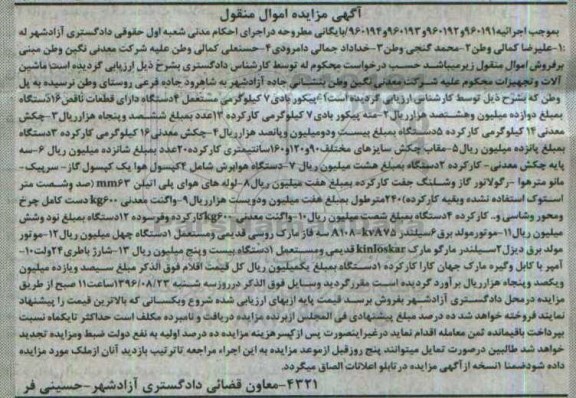 آگهی مزایده اموال منقول
بموجب اجرائیه۹۶۰۱۹۱و۹۶۰۱۹۲و۹۶۰۱۹۳و۹۶۰۱۹۴/بایگانی مطروحه دراجرای احکام مدنی شعبه اول حقوقی دادگستری آزادشهر له
:۱-علیرضا کمالی وطن۲-محمد گنجی وطن۳-خداداد جمالی دامرودی۴-حسنعلی کمالی وطن علیه شرکت معدنی نگین وطن مبنی
برفروش اموال منقول زیرمیباشد حسب درخواست محکوم له توسط کارشناس دادگستری بشرح ذیل ارزیابی گردیده است ماشین
آلات وتجهیزات محکوم علیه شرکت معدنی نگین وطن بنشانی جاده آزادشهر به شاهرود جاده فرعی روستای وطن نرسیده به پل
وطن که بشرح ذیل توسط کارشناس ارزیابی گردیده است۱-پیکور بادی۷ کیلوگرمی مستعمل ۴دستگاه دارای قطعات ناقص۱۶دستگاه
بمبلغ دوازده میلیون وهشتصد هزارریال۲-مته پیکور بادی۷ کیلوگرمی کارکرده ۱۳عدد بمبلغ ششصد وپنجاه هزارریال۳-چکش
معدنی ۱۴ کیلوگرمی کارکرده ۵دستگاه بمبلغ بیست ودومیلیون وپانصد هزارریال۴-چکش معدنی۱۶ کیلوگرمی کارکرده ۳دستگاه
بمبلغ پانزده میلیون ریال۵-مقاب چکش سایزهای مختلف۹۰و۱۲۰و۱۶۰سانتیمتری کارکرده۲۰عدد بمبلغ شانزده میلیون ریال ۶-سه
پایه چکش معدنی- کارکرده ۲دستگاه بمبلغ هشت میلیون ریال ۷-دستگاه هوابرش شامل ۴کپسول هوا یک کپسول گاز- سرپیک-
مانو مترهوا -رگولاتور گاز وشلنگ جفت کارکرده بمبلغ هفت میلیون ریال۸-لوله های هوای پلی اتیلن mm۶۳ (صد وشصت متر
استوک استفاده نشده وبقیه کارکرده)۲۴۰مترطول بمبلغ هفت میلیون ودویست هزارریال۹-واگنت معدنی kg۶۰۰دست کامل چرخ
ومحور وشاسی و.. کارکرده ۴دستگاه بمبلغ شصت میلیون ریال۱۰-واگنت معدنی kg۶۰۰کارکرده وفرسوده ۱۲دستگاه بمبلغ نود وشش
میلیون ریال۱۱-موتورمولد برق۶سیلندر ۸۱۰۸-kva۷۵ سه فاز مارک روسی قدیمی ومستعمل ۱دستگاه چهل میلیون ریال۱۲-موتور
مولد برق دیزل۲سیلندر مارگو مارک kinloskar قدیمی ومستعمل ۱دستگاه بیست وپنج میلیون ریال ۱۳-شارژ باطری ۲۴ولت-۱۰
آمپر با کابل وگیره مارک جهان کارا کارکرده ۱دستگاه بمبلغ یکمیلیون ریال کل قیمت اقلام فوق الذکر مبلغ سیصد ویازده میلیون
ویکصد وپنجاه هزارریال برآورد گردیده است مقررگردید وسایل فوق الذکر درروزسه شنبه ۱۳۹۶/۰۸/۲۳ساعت۱۱ صبح از طریق
مزایده درمحل دادگستری آزادشهر بفروش برسد قیمت پایه ازبهای ارزیابی شده شروع وبکسانی که بالاترین قیمت را پیشنهاد
نمایند فروخته خواهد شد ده درصد مبلغ پیشنهادی فی المجلس ازبرنده مزایده دریافت و نامبرده مکلف است حداکثر تایکماه نسبت
بپرداخت باقیمانده ثمن معامله اقدام نماید درغیراینصورت پس ازکسرهزینه مزایده ده درصد اولیه به نفع دولت ضبط ومزایده تجدید
خواهد شد طالبین درصورت تمایل میتوانند پنج روزقبل ازموعد مزایده به این اجراء مراجعه تاترتیب بازدید آنان ازملک مورد مزایده
داده شودضمنا ۱نسخه از آگهی مزایده در تابلو اعلانات الصاق میگردد.
۴۳۲۱-معاون قضائی دادگستری آزادشهر-حسینی فر